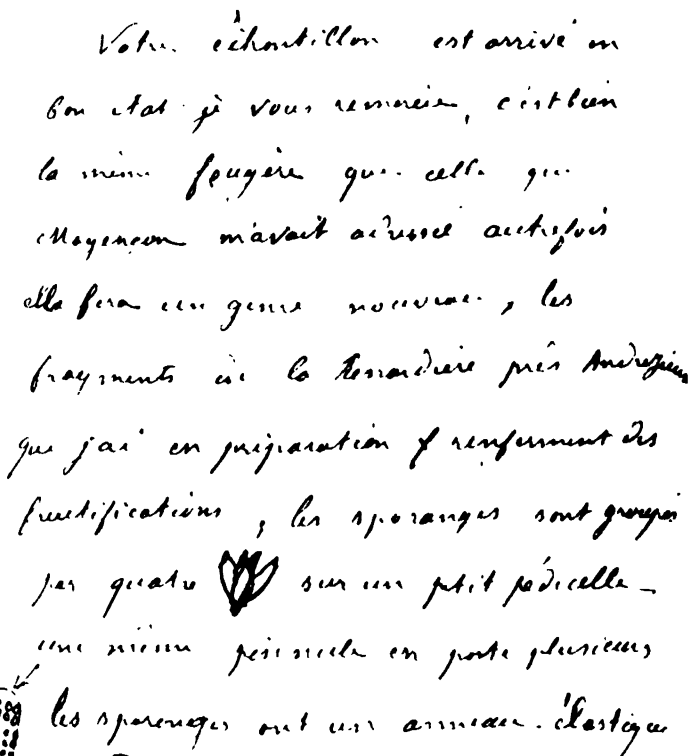 Votre échantillon est arrivé en
bon état je vous remercie, c'est bien
la même fougère que celle que
Mayençon m'avait adressé autrefois
elle fera un genre nouveau, les
fragments de la près Andrézieux
que j'ai en préparation renferment des
fructifications, les sporanges sont groupés
par quatre sur un petit pédicelle _
une même pinnule en porte plusieurs
les sporanges ont un anneau élastique